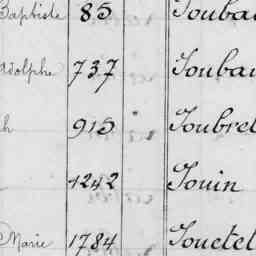 Baptiste 85 Joubau
Adolphe 737 Joubau
h 915 Joubret
1242 Jouin
Marie 1784 Jouetel